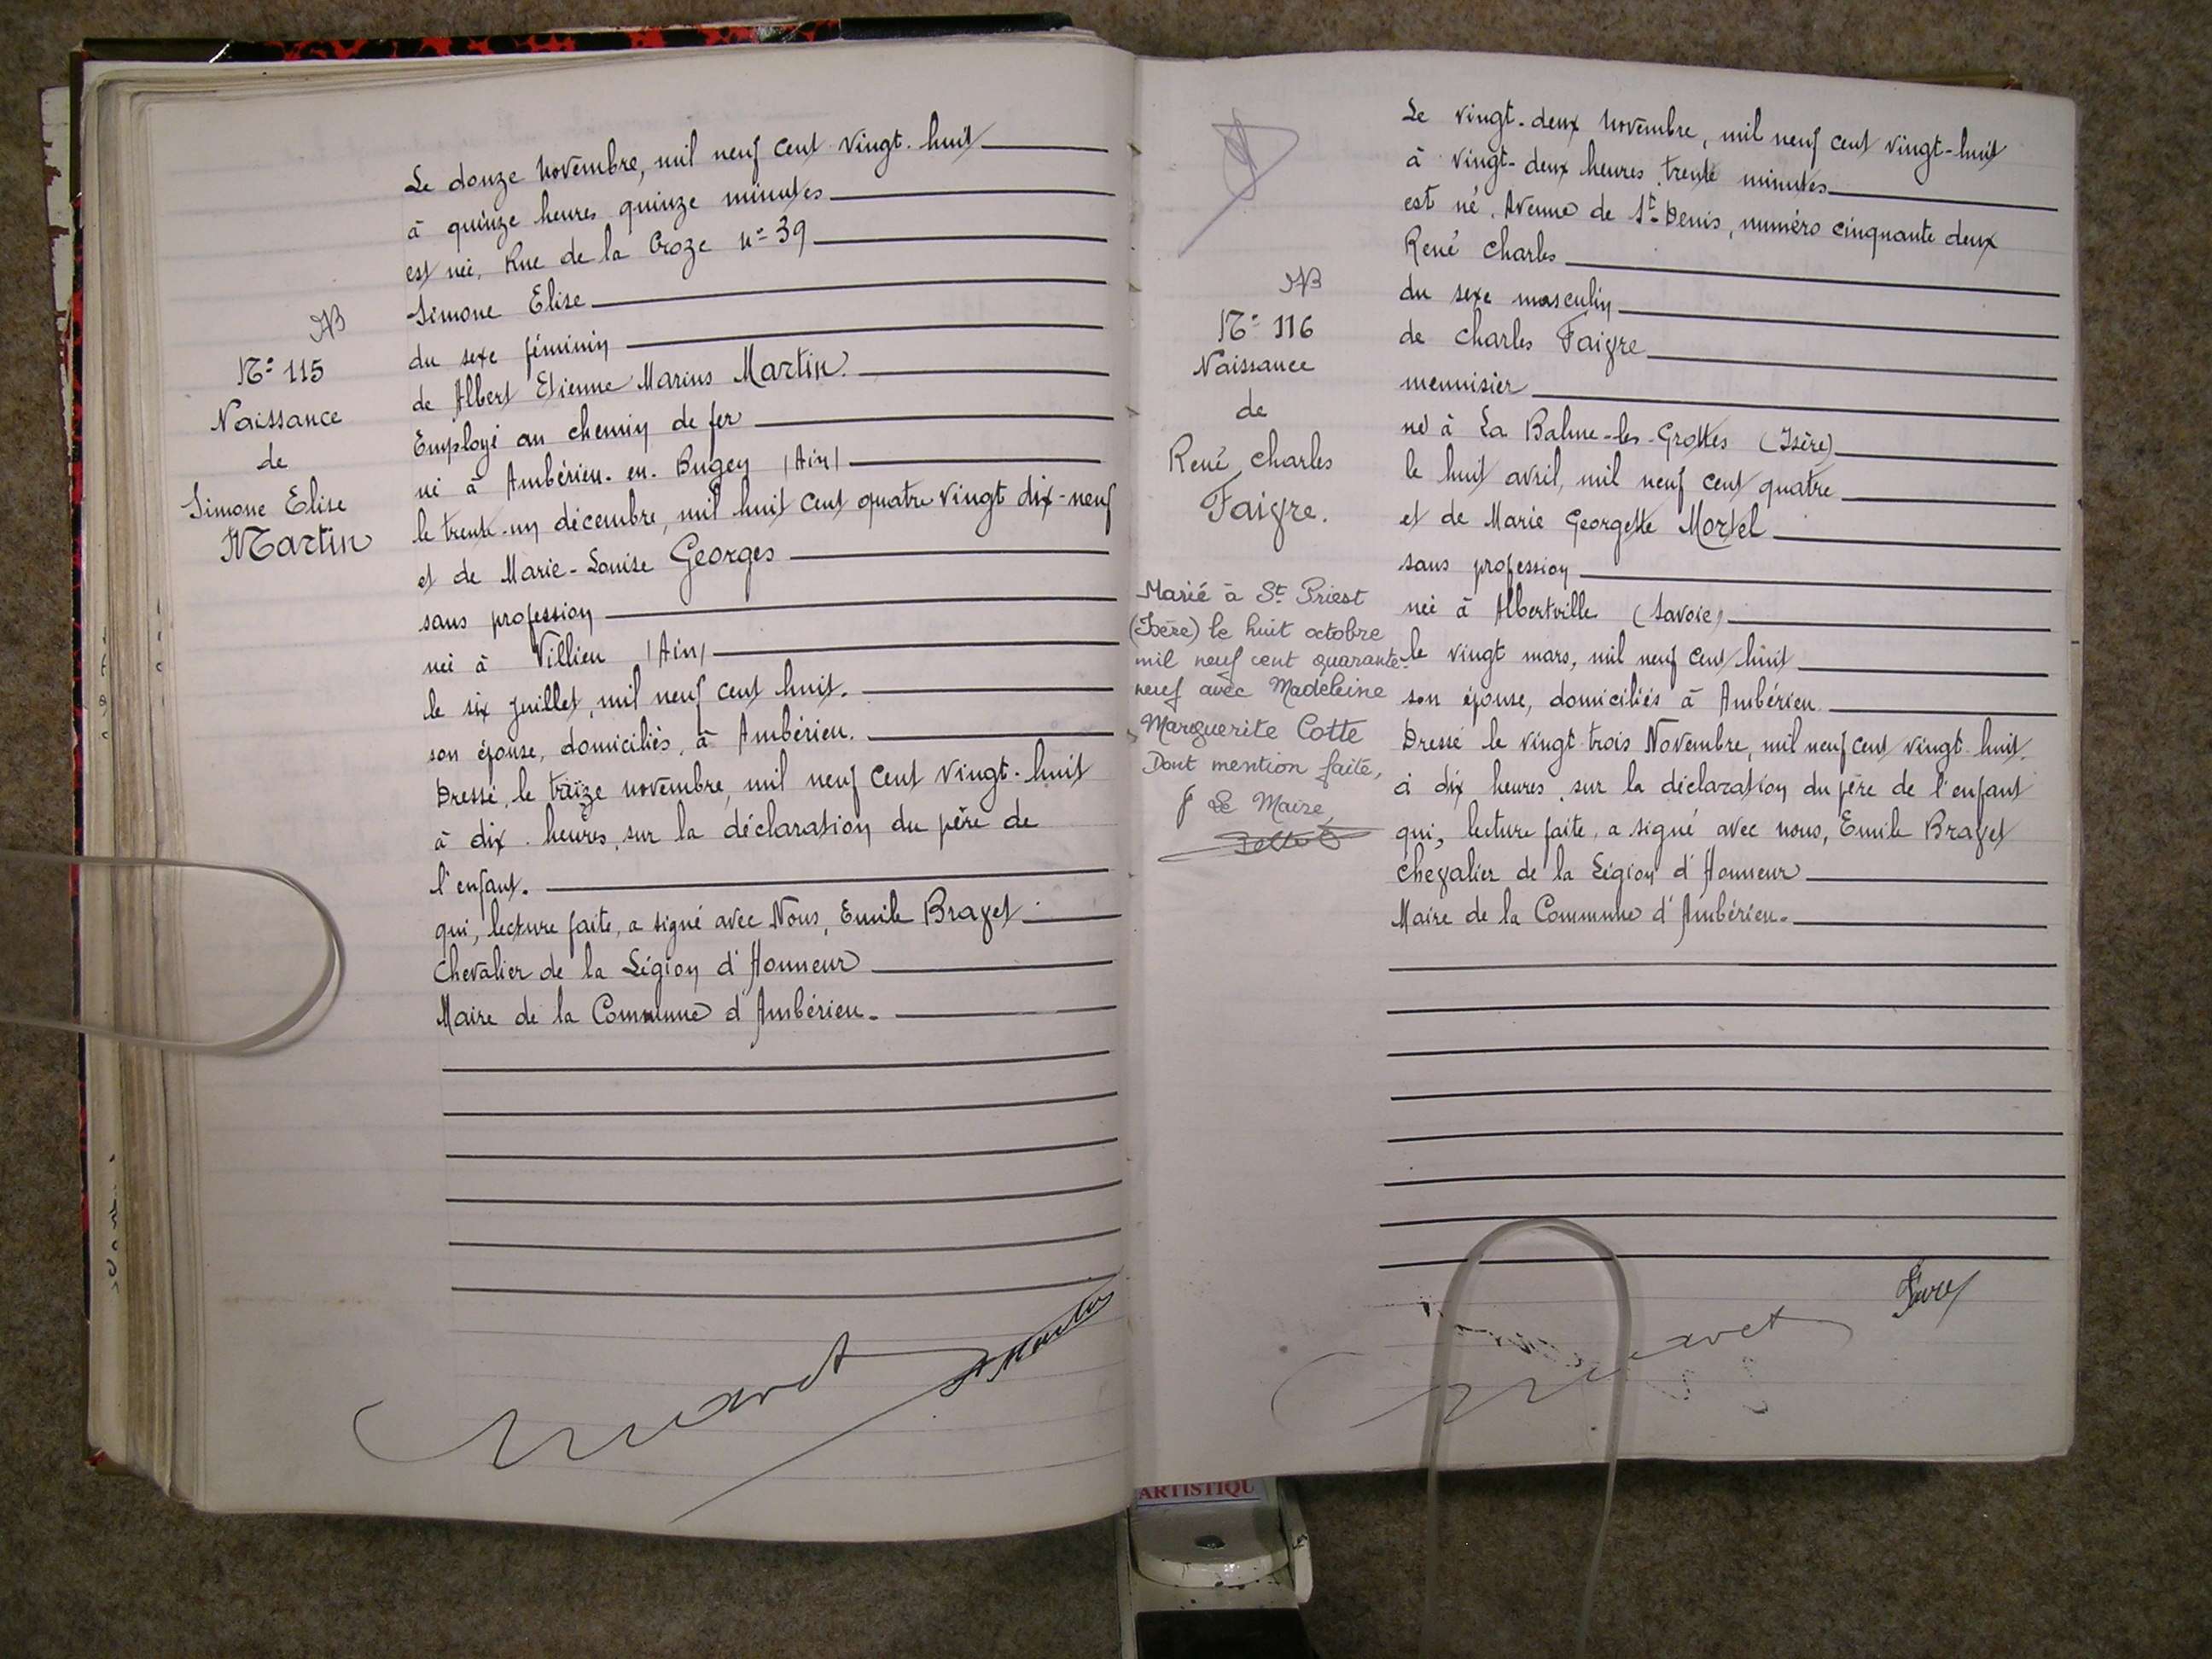 NB
N° 115
Naissance
de
Simone Elise
Martin
Le douze novembre, mil neuf cent vingt-huit
à quinze heures quinze minutes
est née, Rue de la Croze n° 39
Simone Elise
du sexe féminin
de Albert Etienne Marius Martin.
Employé au chemin de fer
né à Ambérieu-en-Bugey (Ain)
le trente-un décembre, mil huit cent quatre vingt dix-neuf
et de Marie-Louise Georges
sans profession
née à Villieu (Ain)
le six juillet, mil neuf cent huit.
son épouse, domiciliés, à Ambérieu.
Dressé, le treize novembre, mil neuf cent vingt-huit
à dix heures, sur la déclaration du père de
l'enfant.
qui, lecture faite, a signé avec Nous, Emile Bravet
Chevalier de la Légion d'Honneur
Maire de la Commune d'Ambérieu.
NB
N° 116
Naissance
de
René Charles
Faivre.
Marié à St Priest
(Isère) le huit octobre
mil neuf cent quarante-
neuf avec Madeleine
Marguerite Cotte
Dont mention faite,
Le Maire,
Le vingt-deux novembre, mil neuf cent vingt-huit
à vingt-deux heures, trente minutes
est né, Avenue de St Denis, numéro cinquante deux
René Charles
du sexe masculin
de Charles Faivre
menuisier
né à La Balme-les-Grottes (Isère)
le huit avril, mil neuf cent quatre
et de Marie Georgette Mortel
sans profession
née à Albertville (Savoie)
le vingt mars, mil neuf cent huit
son épouse, domiciliés à Ambérieu.
Dressé le vingt-trois Novembre, mil neuf cent vingt-huit.
à dix heures, sur la déclaration du père de l'enfant
qui, lecture faite, a signé avec nous, Emile Bravet
chevalier de la Légion d'Honneur
Maire de la Commune d'Ambérieu.
ARTISTIQU